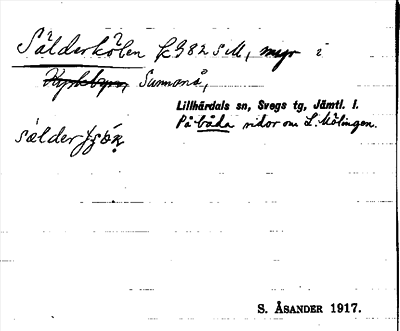 Sälderkölen k 982 S M, myr i
Kyrkbyn, Sunnanå,
Lillhärdals sn, Svegs tg, Jämtl. l.
På båda sidor om L. Mölingen.
sælder
S. ÅSANDER 1917.